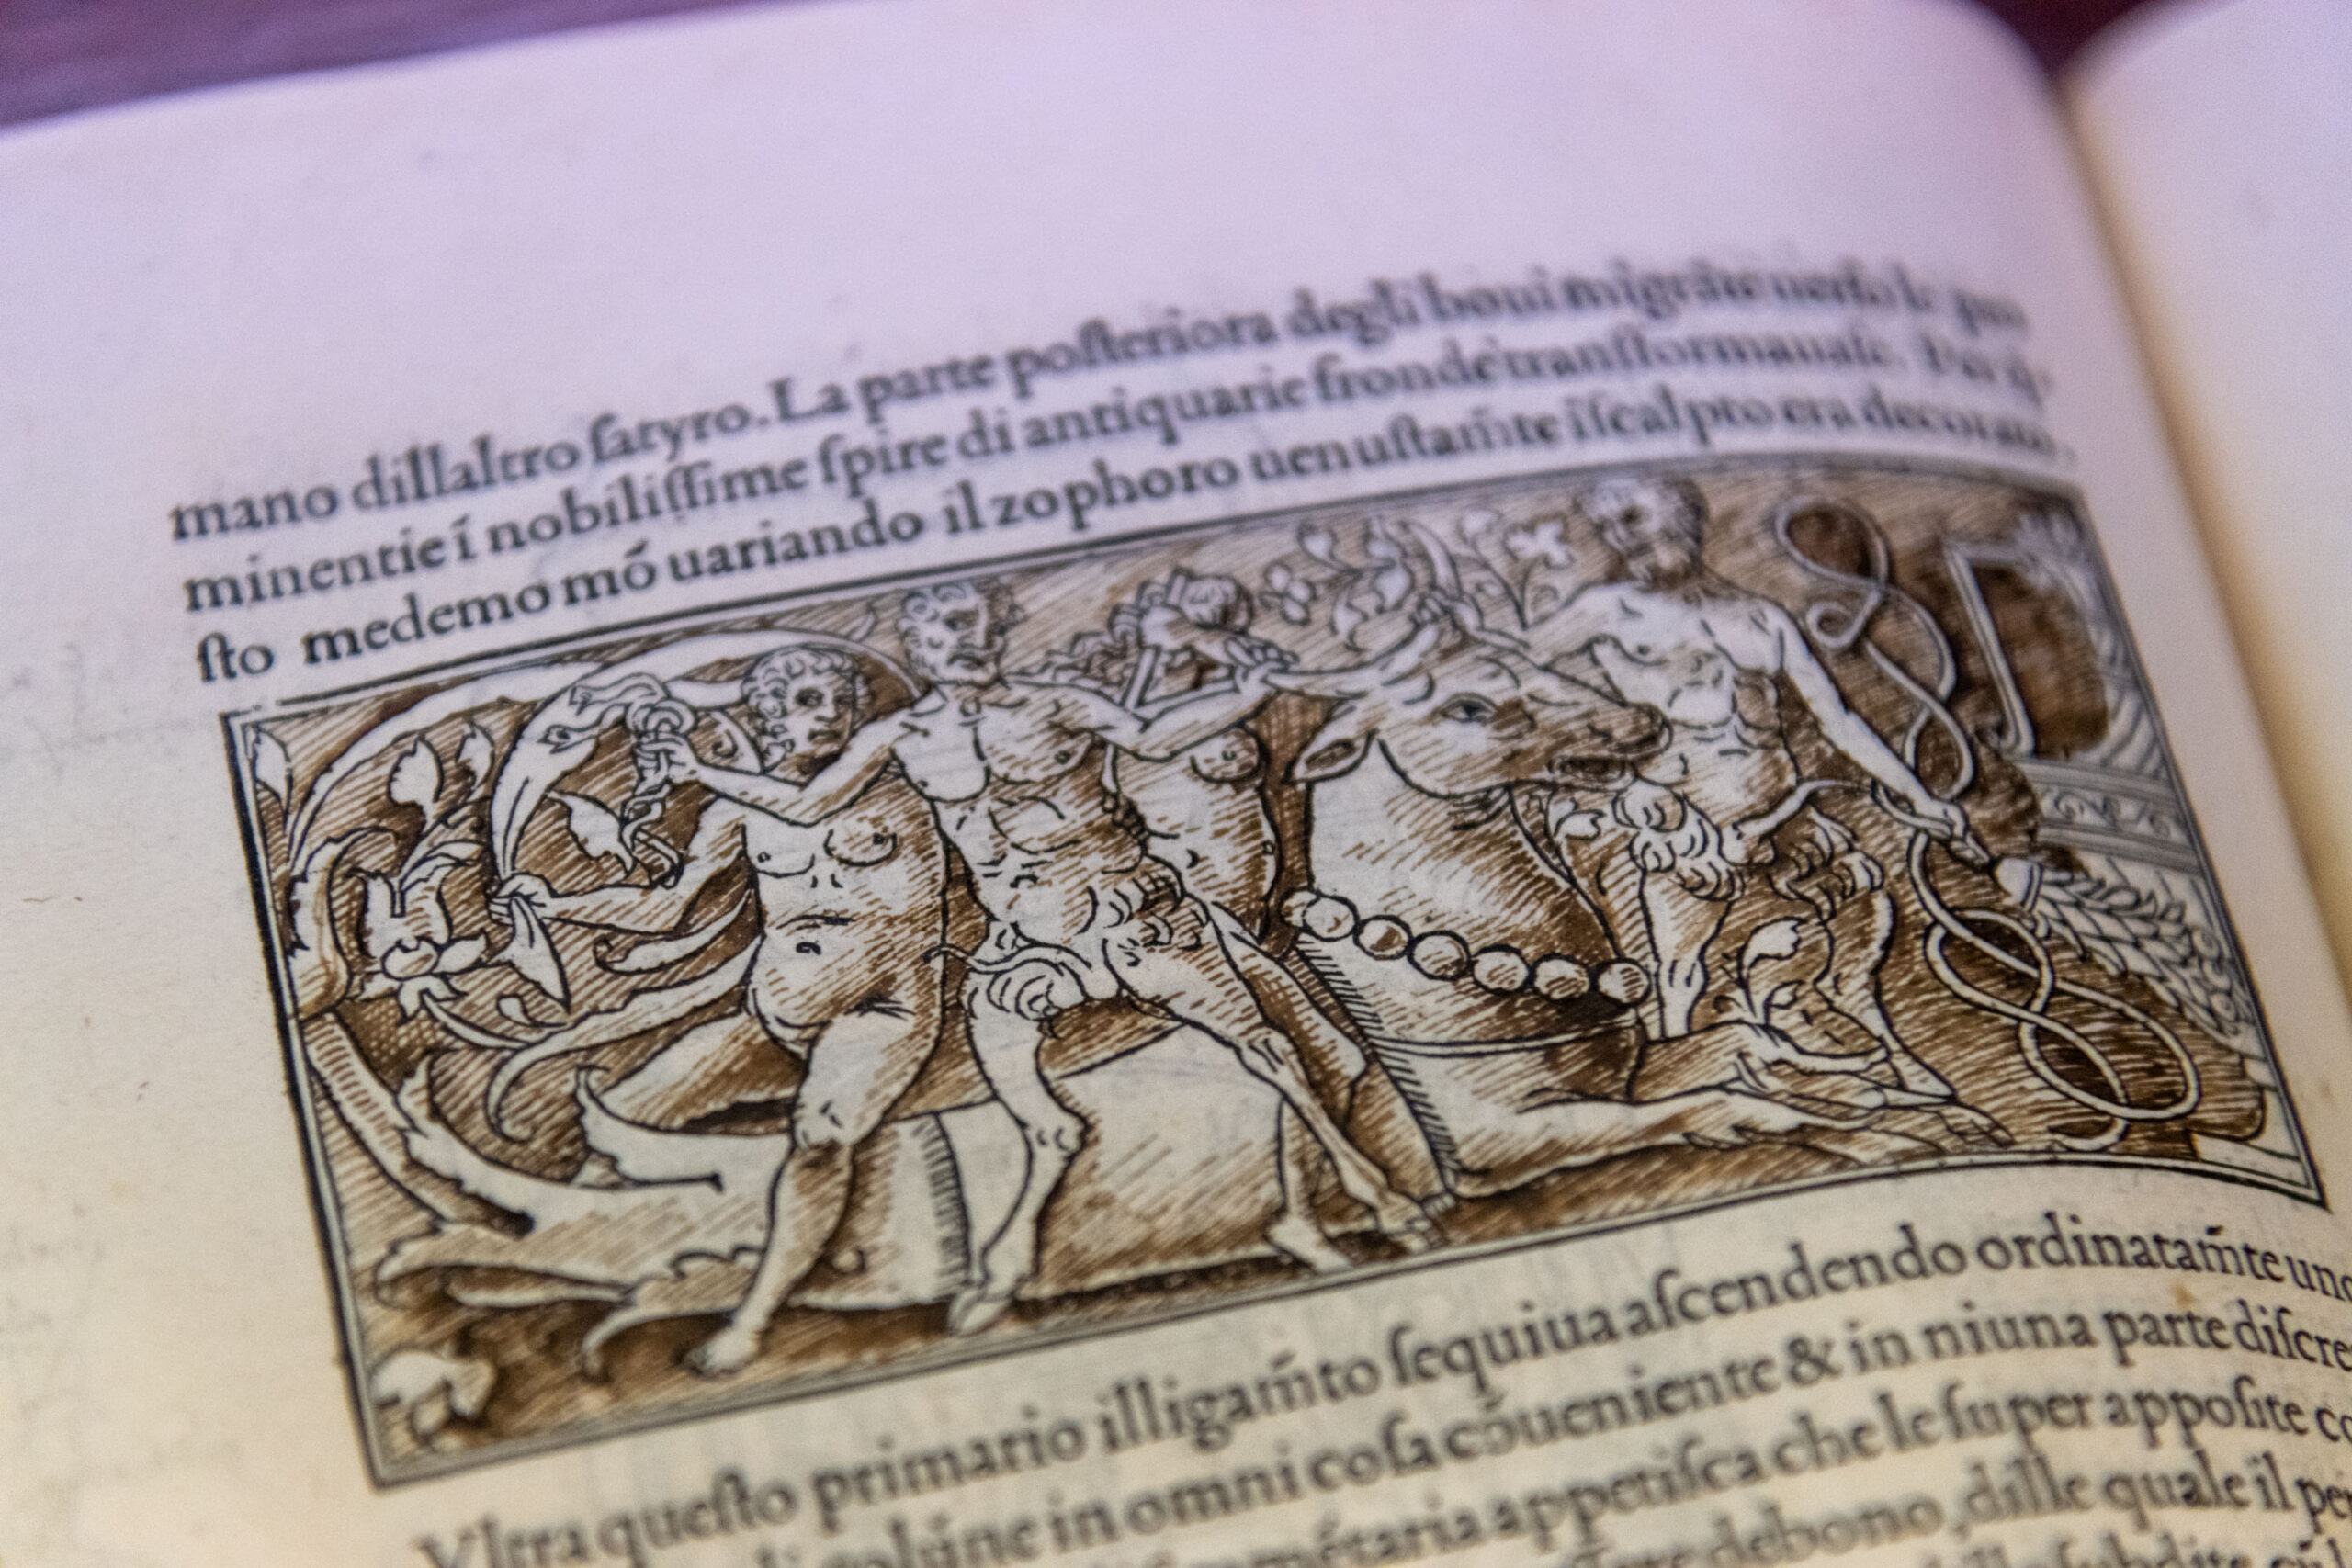 mano dillaltro ſatyro. La parte poſteriora degli boui migrãte uerſo le pro
minentie í nobiliſſime ſpire di antiquarie fronde tranſformauaſe. Per
ſto medemo mó uariando il zophoro uenuſtam̃te iſcalpto era decorato.
Vltra queſto primario illigam̃to ſequiua aſcendendo ordinatam̃te uno
colúne in omni coſa cóueniente & in niuna parte diſcre
métaria appetiſca che le ſuper appoſite co
debono, dille quale il pe